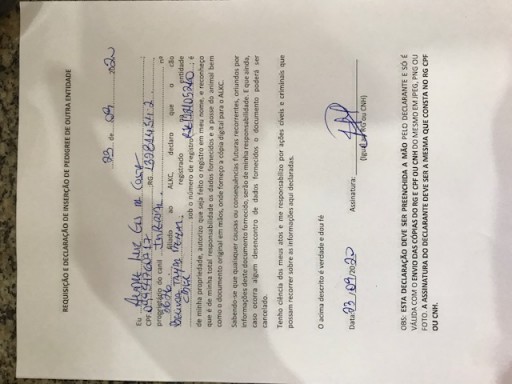 REQUISIÇÃO E DECLARAÇÃO DE INSERÇÃO DE PEDIGREE DE OUTRA ENTIDADE
23 de 09 2020
Eu
CPF RG
proprietário do canil nº
filiado ao ALKC, declaro que o cão
registrado entidade
sob o número de registro é
de minha propriedade, autorizo que seja feito o registro em meu nome, e reconheço
que é de minha total responsabilidade os dados fornecidos e a posse do animal bem
como o documento original em mãos, onde forneço a cópia digital para o ALKC.
Sabendo-se que quaisquer causas ou consequências futuras recorrentes, oriundos por
informações deste documento fornecido, serão de minha responsabilidade. E que ainda,
caso ocorra algum desencontro de dados fornecidos o documento poderá ser
cancelado.
Tenho ciência dos meus atos e me responsabilizo por ações cíveis e criminais que
possam recorrer sobre as informações aqui declaradas.
O acima descrito é verdade e dou fé
Data: 23/09/2020 Assinatura:
(Igual ao RG ou CNH)
OBS: ESTA DECLARAÇÃO DEVE SER PREENCHIDA A MÃO PELO DECLARANTE E SÓ É
VÁLIDA COM O ENVIO DAS CÓPIAS DO RG E CPF OU CNH DO MESMO EM JPEG, PNG OU
FOTO. A ASSINATURA DO DECLARANTE DEVE SER A MESMA QUE CONSTA NO RG CPF
OU CNH.